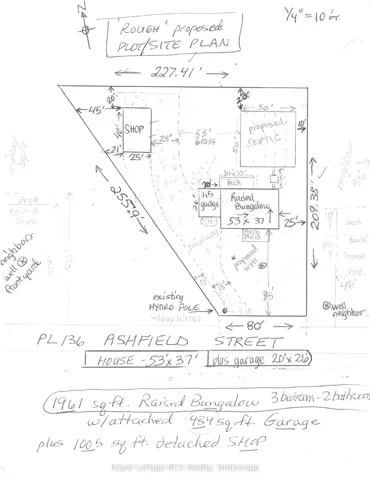 "ROUGH" proposed
PLOT/SITE PLAN
1/4" = 10 FT.
227.41'
20'
45'
50'
10'
40'
SHOP
25'
55'
grass
proposed
SEPTIC
50'
21'
25'
deck
20'
1.5
garage
Raised
Bungalow
53 x 37
25'
209.38'
255.9'
neighbors
well
front yard
proposed
well
85'
existing
HYDRO POLE
w/guy wires
80'
well
neighbor
PL 136 ASHFIELD STREET
HOUSE - 53' x 37' plus garage 20' x 26'
1961 sq ft. Raised Bungalow 3 bedroom - 2 bathroom
w/attached 484 sq ft. Garage
plus 1005 sq ft. detached SHOP
Royal LePage RCR Realty, Brokerage